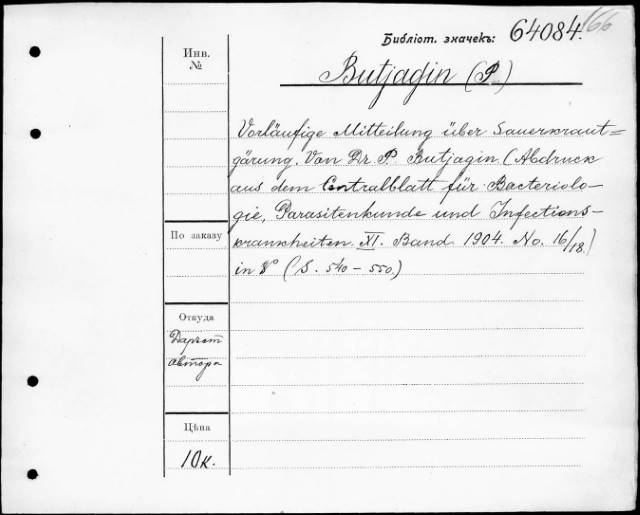 Библіот. значекъ: 64084. 166
Инв.
№
Butjagin (P.)
Vorläufige Mitteilung über Sauerkraut=
gärung. Von Dr. P. Butjagin. (Abdruck
aus dem Centralblatt für Bacteriolo-
gie, Parasitenkunde und Infections-
krankheiten. XI. Band. 1904. No. 16/18.)
in 8° (S. 540-550.)
По заказу
Откуда
Даръ от
автора
Цѣна
10к.